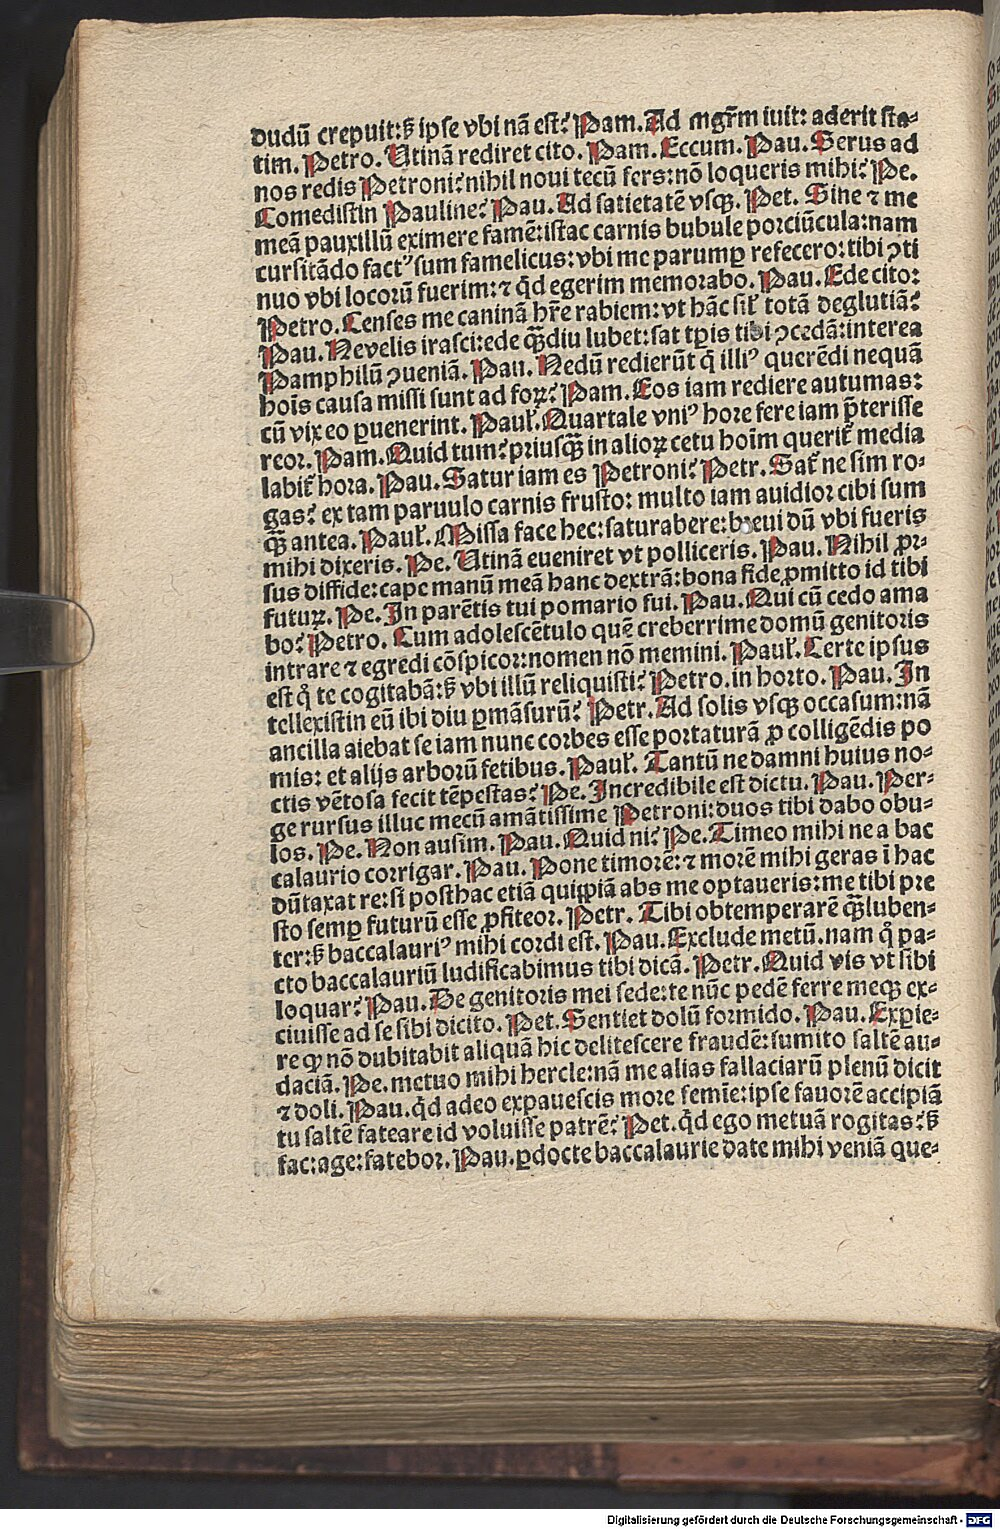 dudū crepuit:ꝫ ipse vbi nā est? Pam. Ad mgr̄m iuit: aderit sta⸗
tim. Petro. Utinā rediret cito. Pam. Eccum. Pau. Serus ad
nos redis Petroni? nihil noui tecū fers: nō loqueris mihi? Pe.
Comedistin Pauline? Pau. Ad satietatē vsqꝫ. Pet. Sine ⁊ me
meā pauxillū eximere famē: istac carnis bubule porciūcula: nam
cursitādo factꝰ sum famelicus: vbi me parumꝑ refecero: tibi ꝯti
nuo vbi locorū fuerim: ⁊ qd̄ egerim memorabo. Pau. Ede cito:
Petro. Censes me caninā hr̄e rabiem: vt hāc sil̄ totā deglutiā?
Pau. Ne velis irasci: ede qꝫ̄diu lubet: sat tꝑis tibi ꝯcedā: interea
Pamphilū ꝯueniā. Pau. Nedū redierūt q̄ illiꝰ querēdi nequā
hoīs causa missi sunt ad foꝝ? Pam. Eos iam rediere autumas:
cū vix eo ꝑuenerint. Paul̄. Quartale vniꝰ hore fere iam p̄terisse
reor. Pam. Quid tum? priusqꝫ̄ in alioꝝ cetu hoīm querit̄ media
labit̄ hora. Pau. Satur iam es Petroni? Petr. Sat̄ ne sim ro⸗
gas? ex tam paruulo carnis frusto: multo iam auidior cibi sum
qꝫ̄ antea. Paul̄. Missa face hec: saturabere: breui dū vbi fueris
mihi dixeris. Pe. Utinā eueniret vt polliceris. Pau. Nihil ꝓr⸗
sus diffide: cape manū meā hanc dextrā: bona fide ꝓmitto id tibi
futuꝝ. Pe. In parētis tui pomario fui. Pau. Qui cū cedo ama
bo? Petro. Cum adolescētulo quē creberrime domū genitoris
intrare ⁊ egredi cōspicor: nomen nō memini. Paul̄. Certe ipsus
est q̊ te cogitabā: ꝫ vbi illū reliquisti? Petro. in horto. Pau. In
tellexistin eū ibi diu ꝑmāsurū? Petr. Ad solis vsqꝫ occasum: nā
ancilla aiebat se iam nunc corbes esse portaturā ꝓ colligēdis po
mis: et alijs arborū fetibus. Paul̄. Tantū ne damni huius no⸗
ctis vētosa fecit tēpestas? Pe. Incredibile est dictu. Pau. Per⸗
ge rursus illuc mecū amātissime Petroni: duos tibi dabo obu⸗
los. Pe. Non ausim. Pau. Quid ni? Pe. Timeo mihi ne a bac
calaurio corrigar. Pau. Pone timorē: ⁊ morē mihi geras ī hac
dūtaxat re: si posthac etiā quippiā abs me optaueris: me tibi pre
sto semꝑ futurū esse ꝓfiteor. Petr. Tibi obtemperarē qꝫ̄luben⸗
ter: ꝫ baccalauriꝰ mihi cordi est. Pau. Exclude metū. nam q̊ pa⸗
cto baccalauriū ludificabimus tibi dicā. Petr. Quid vis vt sibi
loquar? Pau. De genitoris mei sede: te nūc pedē ferre meqꝫ ex⸗
ciuisse ad se sibi dicito. Pet. Sentiet dolū formido. Pau. Exꝑie⸗
re qꝫ nō dubitabit aliquā hic delitescere fraudē: sumito saltē au⸗
daciā. Pe. metuo mihi hercle: nā me alias fallaciarū plenū dicit
⁊ doli. Pau. qd̄ adeo expauescis more femīe: ipse fauorē accipiā
tu saltē fateare id voluisse patrē? Pet. qd̄ ego metuā rogitas? ꝫ
fac: age: fatebor. Pau. ꝑdocte baccalaurie date mihi veniā que⸗
Digitalisierung gefördert durch die Deutsche Forschungsgemeinschaft - DFG